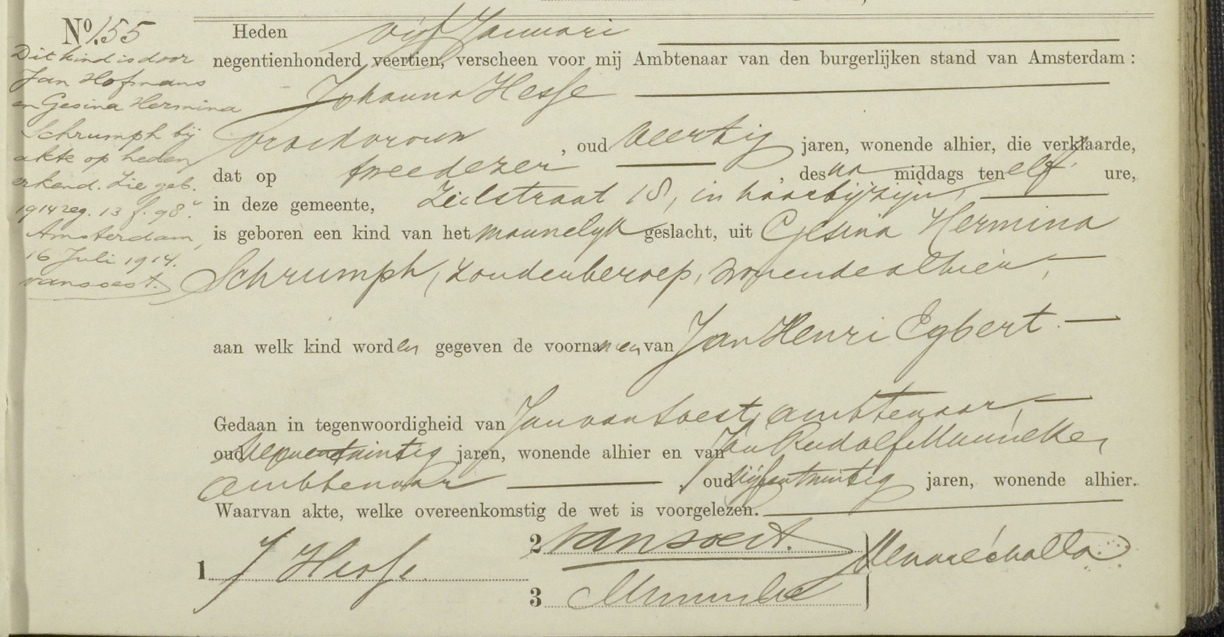 No. 155
Dit kind is door
Jan Hofmans
en Gesina Hermina
Schrumph bij
akte op heden
erkend. Zie geb.
1914 reg. 13 f. 98v.
Amsterdam,
16 Juli 1914.
van Soest.
Heden vijf Januari
negentienhonderd veertien, verscheen voor mij Ambtenaar van den burgerlijken stand van Amsterdam:
Johanna Hesse
vroedvrouw, oud veertig jaren, wonende alhier, die verklaarde,
dat op tweedezer, des na middags ten elf ure,
in deze gemeente, Zeilstraat 18, in haar bijzijn,
is geboren een kind van het mannelijk geslacht, uit Gesina Hermina
Schrumph, zonder beroep, wonende alhier,
aan welk kind worden gegeven de voornamen van Jan Henri Egbert.
Gedaan in tegenwoordigheid van Jan van Soest, ambtenaar,
oud jaren, wonende alhier en van Jan Rudolf Manneke,
ambtenaar, oud vijfentwintig jaren, wonende alhier.
Waarvan akte, welke overeenkomstig de wet is voorgelezen.
1 J Hesse
2 van Soest.
3